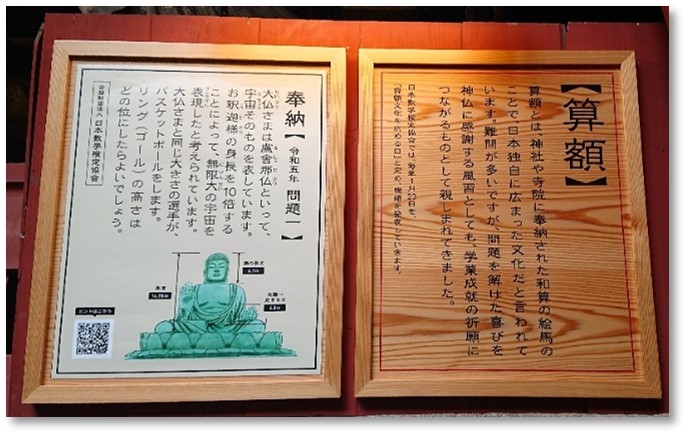 【算額】
算額とは、神社や寺院に奉納された和算の絵馬の
ことで日本独自に広まった文化だと言われて
います。難問が多いですが、問題を解けた喜びを
神仏に感謝する風習としても、学業成就の祈願に
つながるものとして親しまれてきました。
日本数学検定協会では、毎年1月23日を、
「算額文化を広める日」と定め、機運を促進しています。
奉納【令和五年 問題一】
大仏さまは盧舎那仏といって、
宇宙そのものを表しています。
お釈迦様の身長を10倍する
ことによって、無限大の宇宙を
表現したと考えられています。
大仏さまと同じ大きさの選手が、
バスケットボールをします。
リング(ゴール)の高さは
どの位にしたらよいでしょう。
公益財団法人 日本数学検定協会
ヒントはこちら